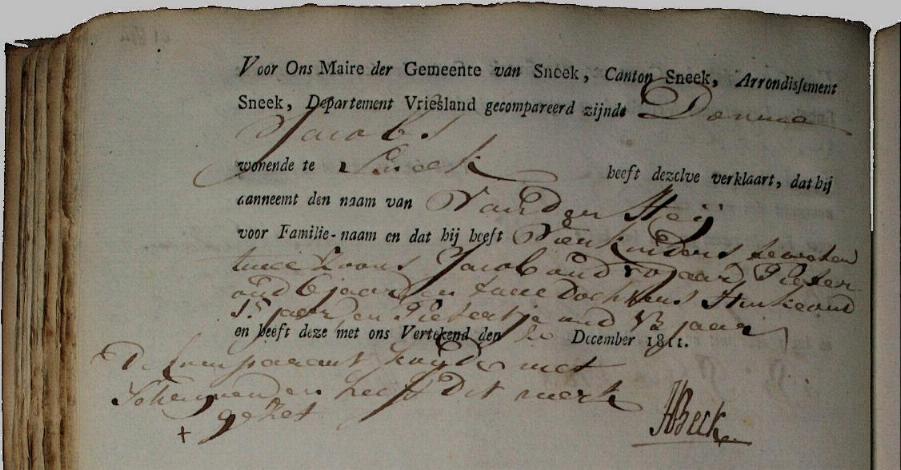 Voor Ons Maire der Gemeente van Sneek, Canton Sneek, Arrondissement
Sneek, Departement Vriesland gecompareerd zijnde Douwe
Jacobs
wonende te Sneek heeft dezelve verklaart, dat hij
aanneemt den naam van Van der Heij
voor Familie-naam en dat hij heeft vier kinders te weten
twee Zoons Jacob oud jaar Pieter
oud 6 jaar en twee Dochters Hinke oud
jaar en Pietertje oud jaar
en heeft deze met ons Vertekend den December 1811.
De Comparant zeijde niet
te kennen heeft Dit merk
gezet
+
HBeek